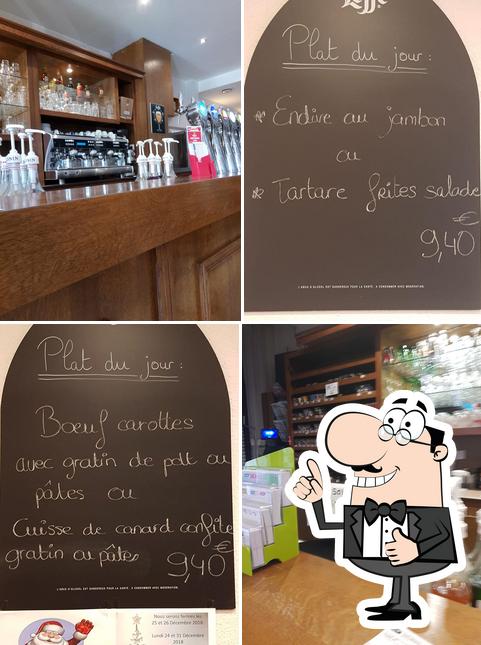 Leffe
Plat du jour :
* Endive au jambon
ou
* Tartare frites salade
€
9,40
L'ABUS D'ALCOOL EST DANGEREUX POUR LA SANTÉ. À CONSOMMER AVEC MODÉRATION.
Plat du jour :
Bœuf carottes
avec gratin de pdt ou
pâtes ou
Cuisse de canard confite
gratin ou pâtes 9,40€
L'ABUS D'ALCOOL EST DANGEREUX POUR LA SANTÉ. À CONSOMMER AVEC MODÉRATION.
Nous serons fermés les
25 et 26 Décembre 2018
Lundi 24 et 31 Décembre
2018